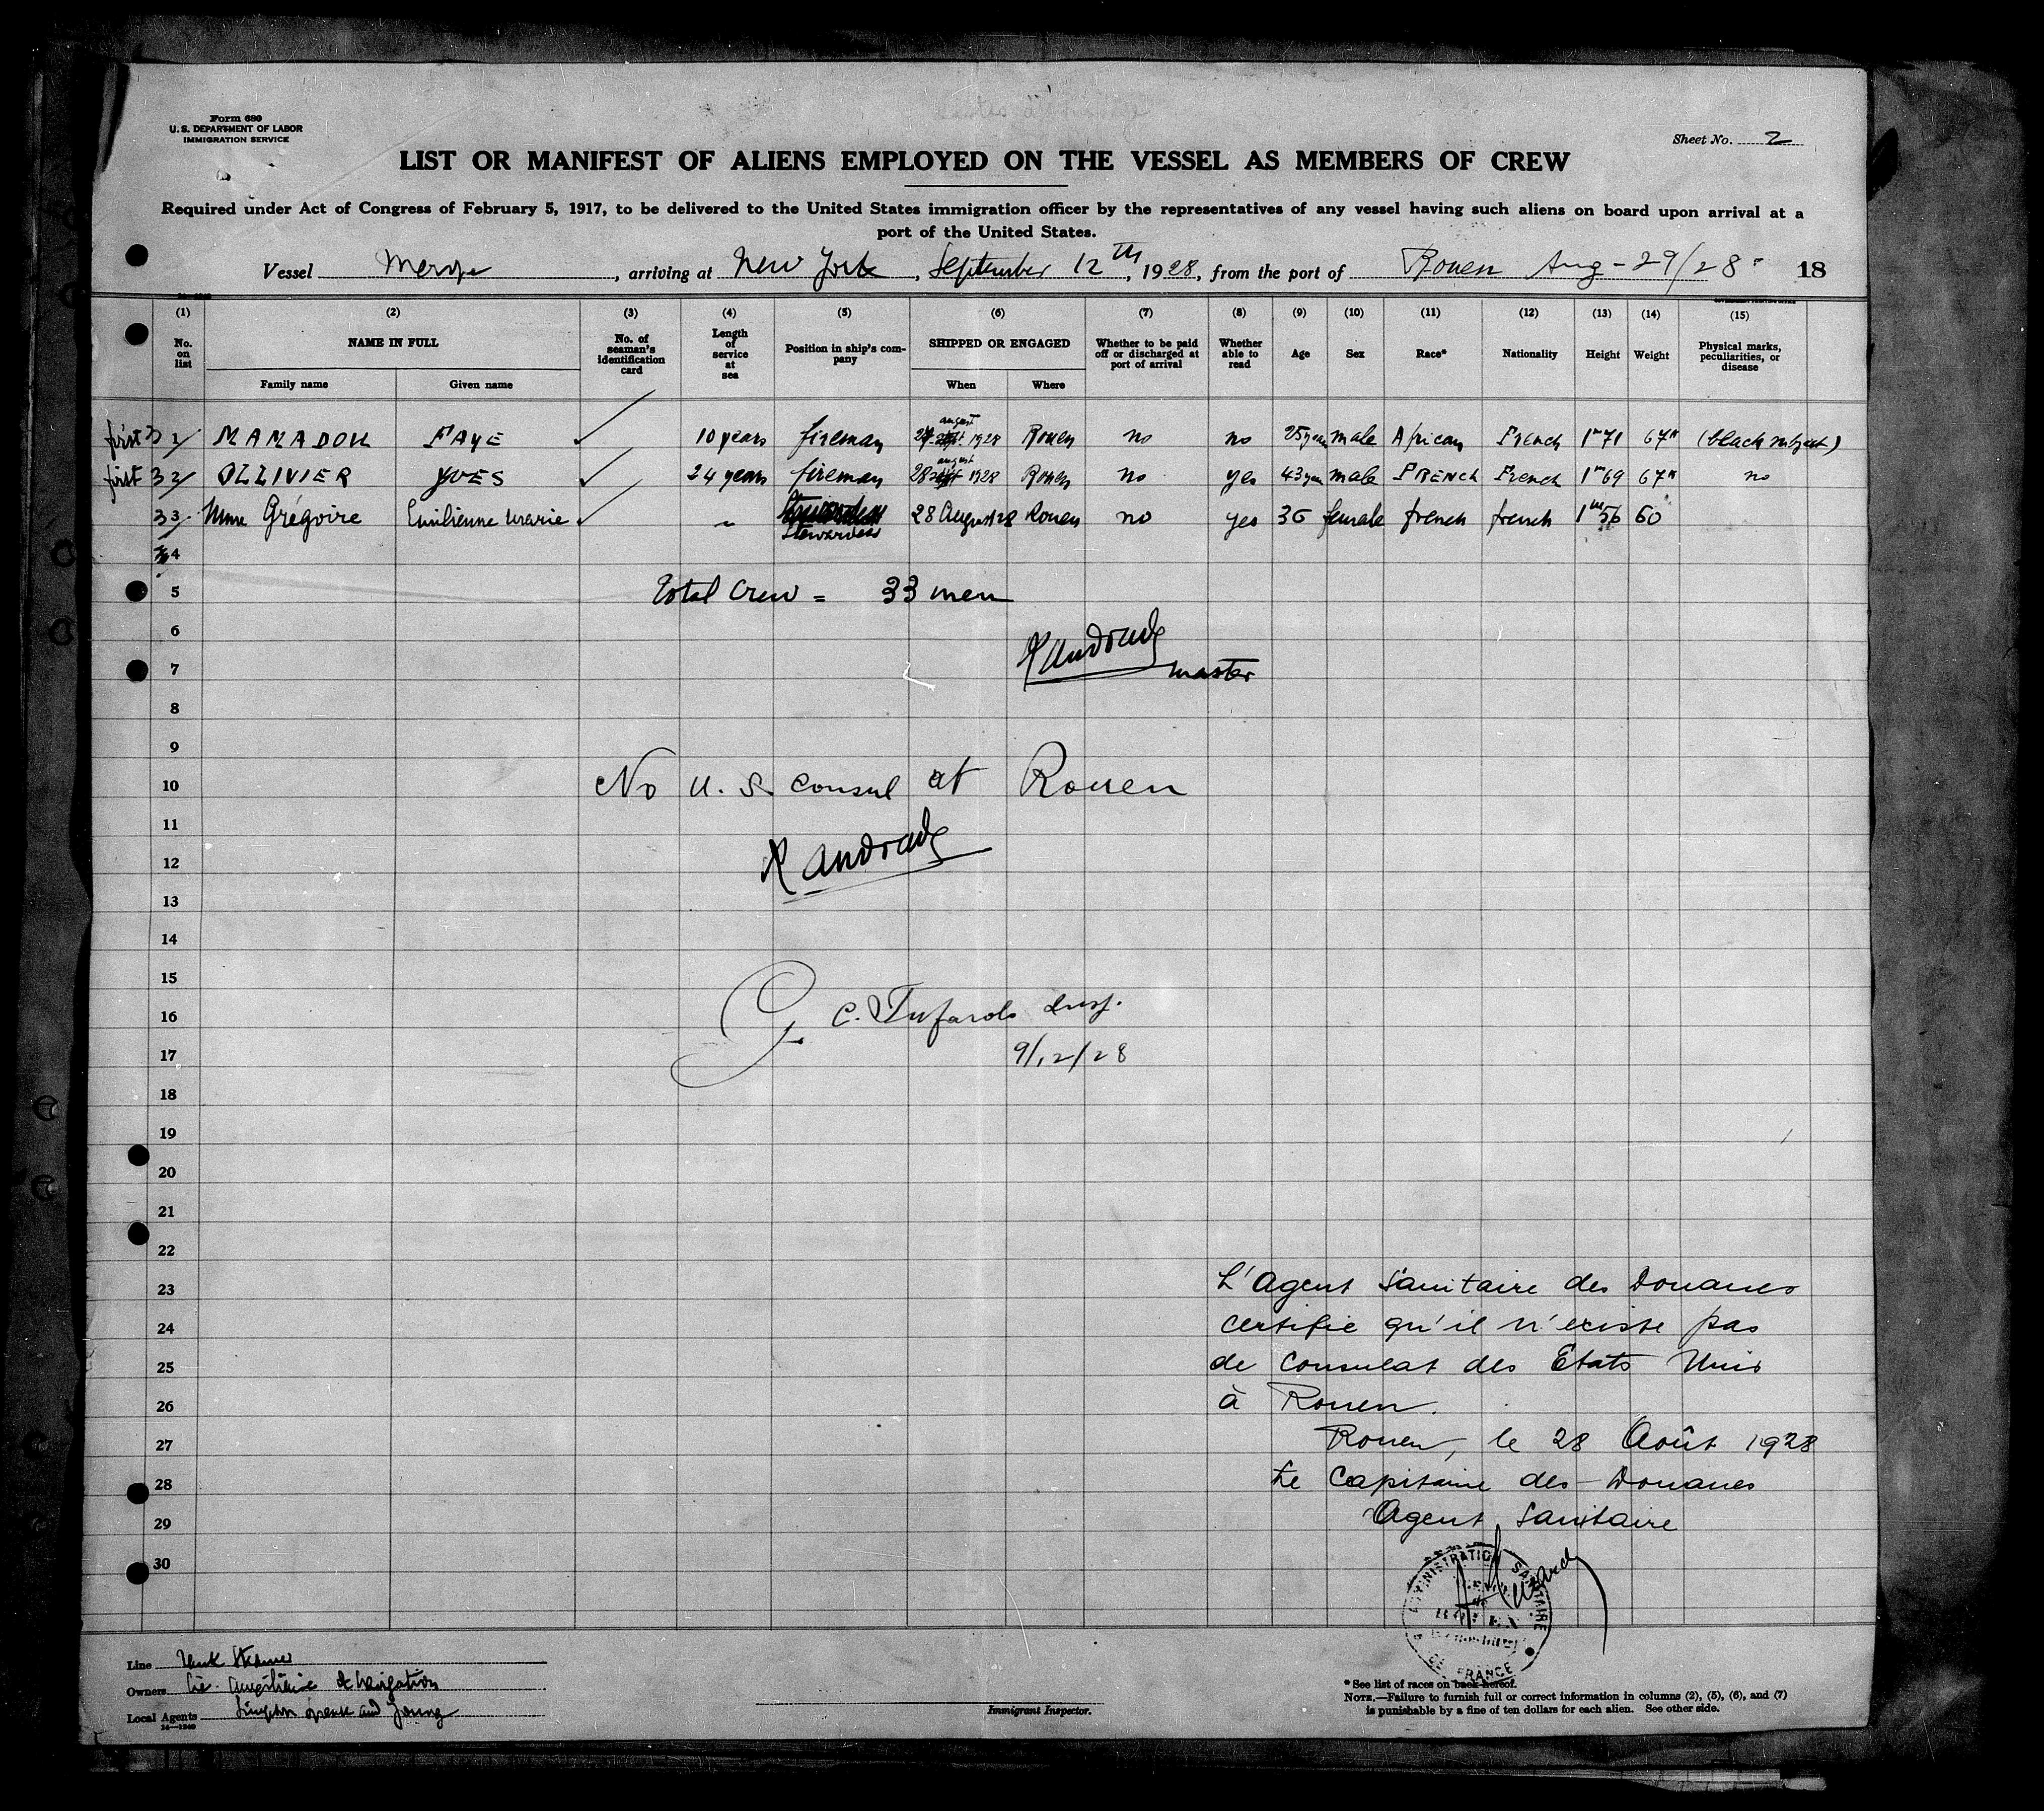 Form 680
U. S. DEPARTMENT OF LABOR
IMMIGRATION SERVICE
Sheet No. 2
LIST OR MANIFEST OF ALIENS EMPLOYED ON THE VESSEL AS MEMBERS OF CREW
Required under Act of Congress of February 5, 1917, to be delivered to the United States immigration officer by the representatives of any vessel having such aliens on board upon arrival at a
port of the United States.
Vessel , arriving at New York, September 12th, 1928, from the port of Rouen Aug - 29/28 18
(1) (2) (3) (4) (5) (6) (7) (8) (9) (10) (11) (12) (13) (14) (15)
No. on list NAME IN FULL Family name Given name No. of seaman's identification card Length of service at sea Position in ship's company SHIPPED OR ENGAGED When Where Whether to be paid off or discharged at port of arrival Whether able to read Age Sex Race* Nationality Height Weight Physical marks, peculiarities, or disease
first 31 MAMADOU FAYE 10 years fireman august 1928 Rouen no no 25 years male African French 1m71 67k (black subject)
first 32 OLLIVIER YVES 24 years fireman 28 august 1928 Rouen no yes 43 years male FRENCH French 1m69 67k no
33 Mme Grégoire Emilienne Marie Stewardess 28 August 28 Rouen no yes 36 female french french 1m56 60
4
5 Total Crew = 33 men
6
7 R Andrade master
8
9
10 No U. S. Consul at Rouen
11
12 R Andrade
13
14
15
16
17 9/12/28
18
19
20
21
22
23 L'Agent Sanitaire des Douanes
24 certifie qu'il n'existe pas
25 de Consulat des Etats Unis
26 à Rouen.
27 Rouen, le 28 Août 1928
28 Le Capitaine des Douanes
29 Agent Sanitaire
30
ADMINISTRATION SANITAIRE DE FRANCE
Line Tank Steamer
Owners Cie. Auxiliaire de Navigation
Local Agents Simpson Spence and Young
14—1240
Immigrant Inspector.
* See list of races on back hereof.
NOTE.—Failure to furnish full or correct information in columns (2), (5), (6), and (7)
is punishable by a fine of ten dollars for each alien. See other side.